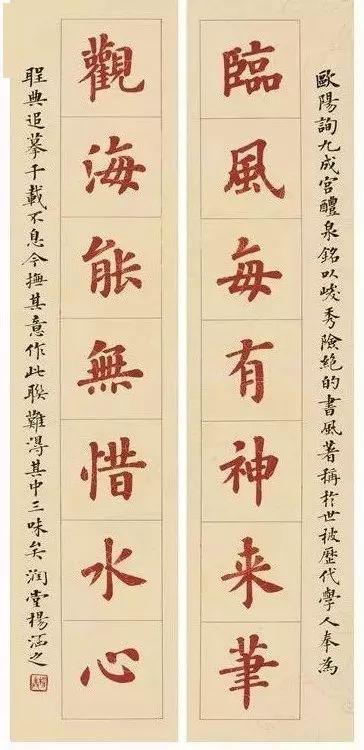 歐陽詢九成宮醴泉銘以峻秀險絶的書風著稱於世被歷代學人奉為
臨風每有神来筆
觀海能無惜水心
聖典追摹千載不息今撫其意作此聯難得其中三味矣润堂楊涵之